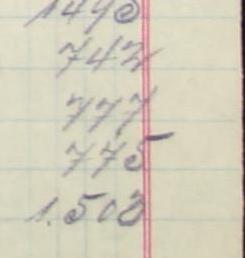 1445
742
777
775
1.503